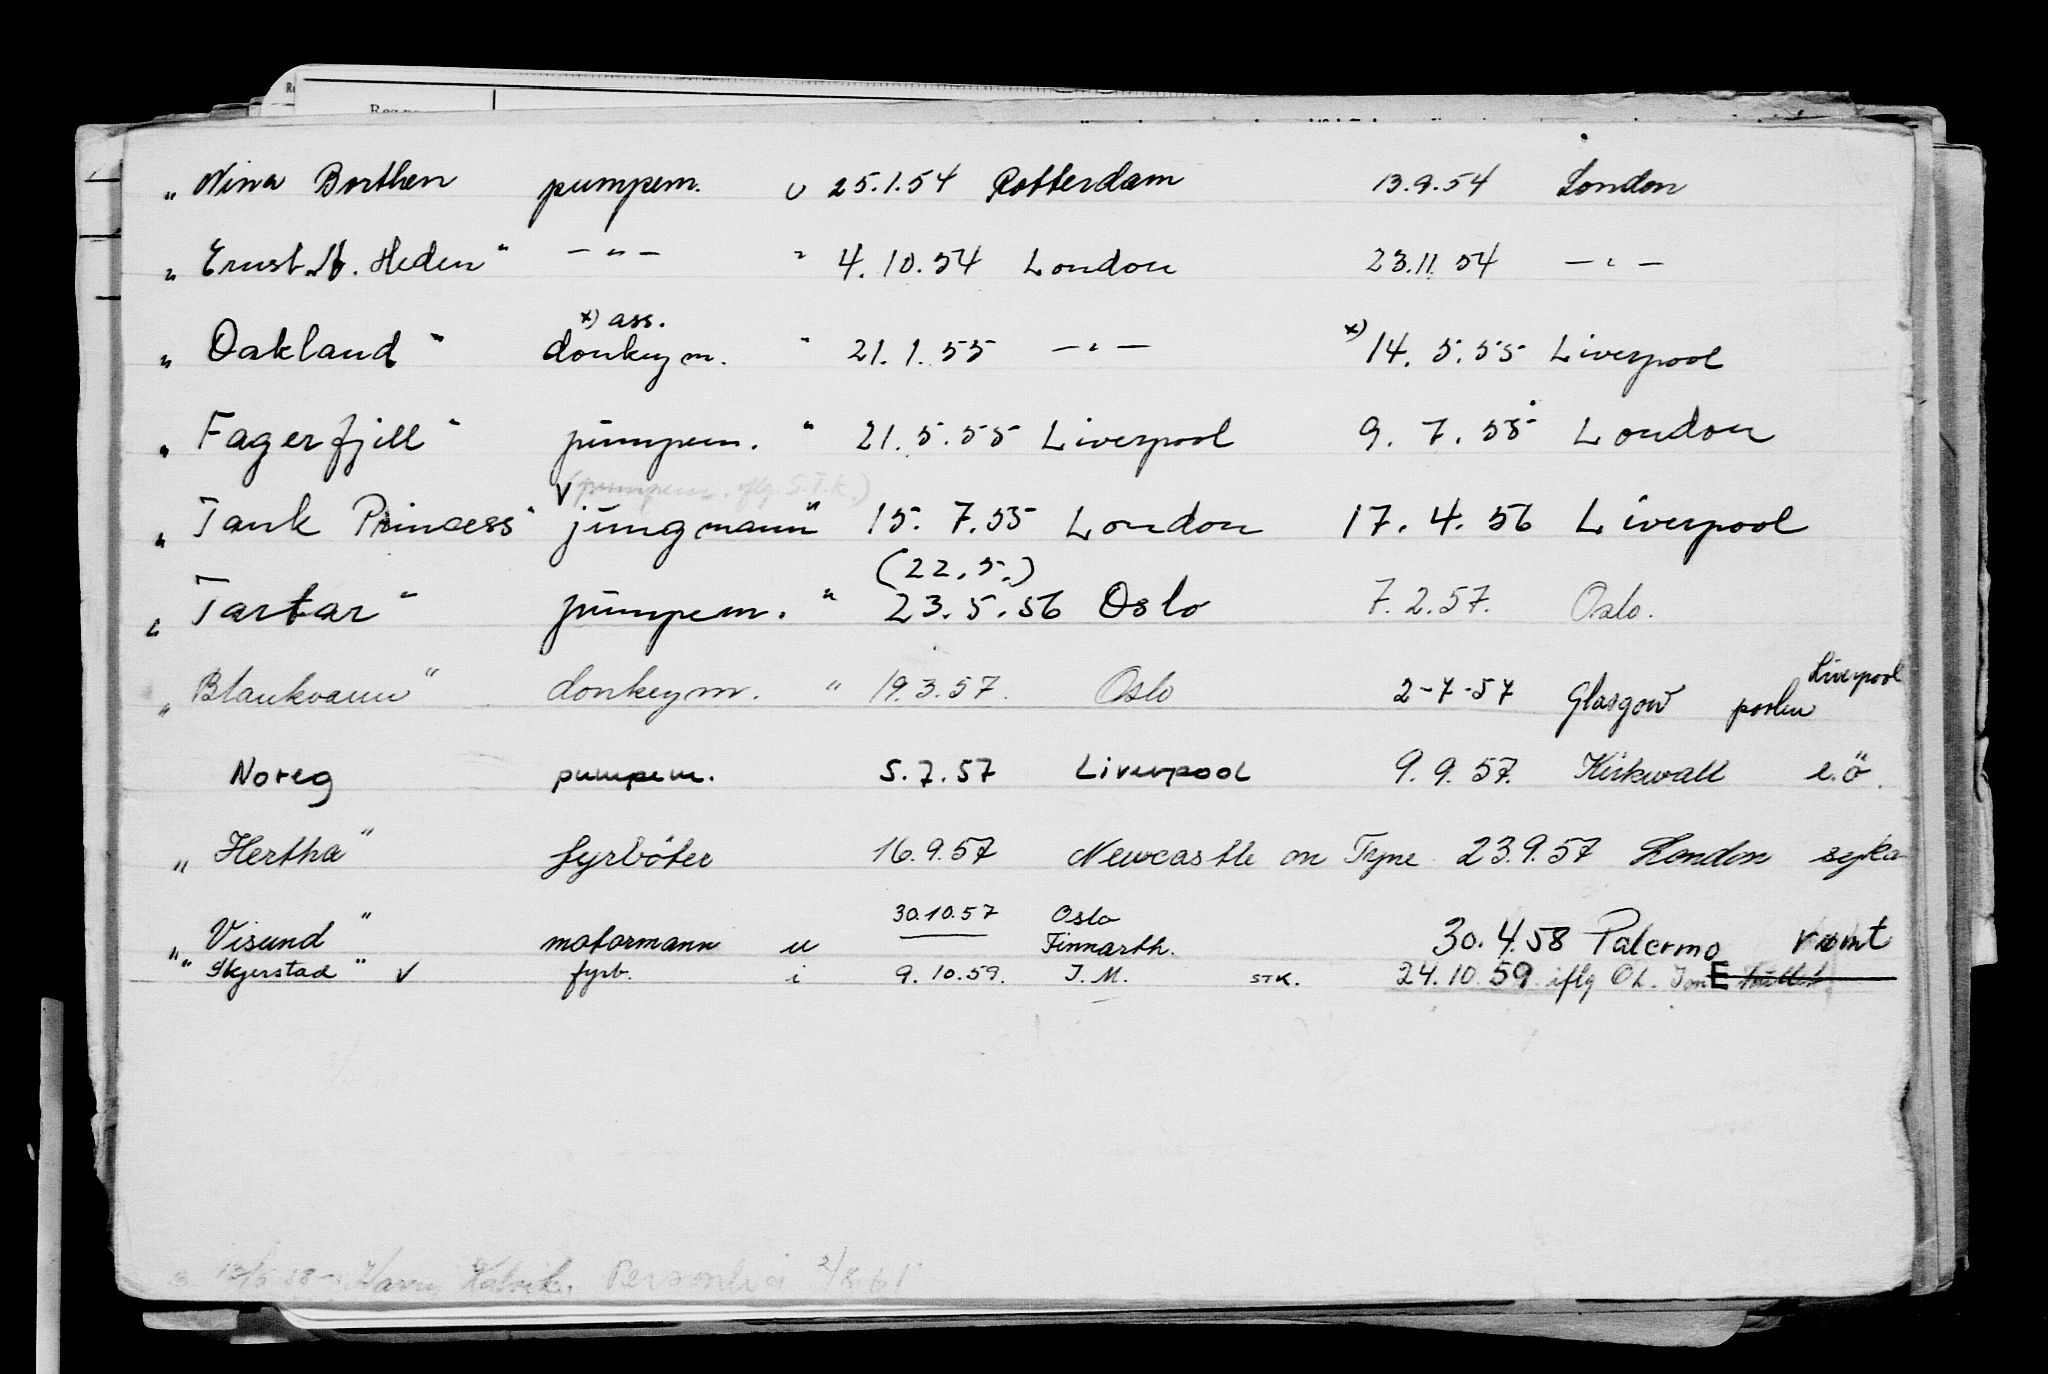 „ Nina Borthen pumpem. u 25.1.54 Rotterdam 13.9.54 London
„ Ernst A. Heden" — " — " 4.10.54 London 23.11.54 — " —
x) ass.
„ Oakland" donkeym. " 21.1.55 — " — x) 14.5.55 Liverpool
„ Fagerfjell" pumpem. " 21.5.55 Liverpool 9.7.55 London
(pumpem. iflg. S.T.K.)
„ Tank Princess" v jungmann " 15.7.55 London 17.4.56 Liverpool
(22.5.)
„ Tartar" pumpem. " 23.5.56 Oslo 7.2.57. Oslo.
„ Blankvann" donkeym. " 19.3.57. Oslo 2-7-57 Glasgow Liverpool
Noreg pumpem. 5.7.57 Liverpool 9.9.57. Kirkwall e.ö.
„ Hertha" fyrböter 16.9.57 Newcastle on Tyne 23.9.57 London syka
30.10.57 Oslo
„ Visund" motormann u Finnarth. 30.4.58 Palermo rømt
„ Skjerstad" v fyrb. i 9.10.59. I.M. STK. 24.10.59 iflg E
Harry Personlig